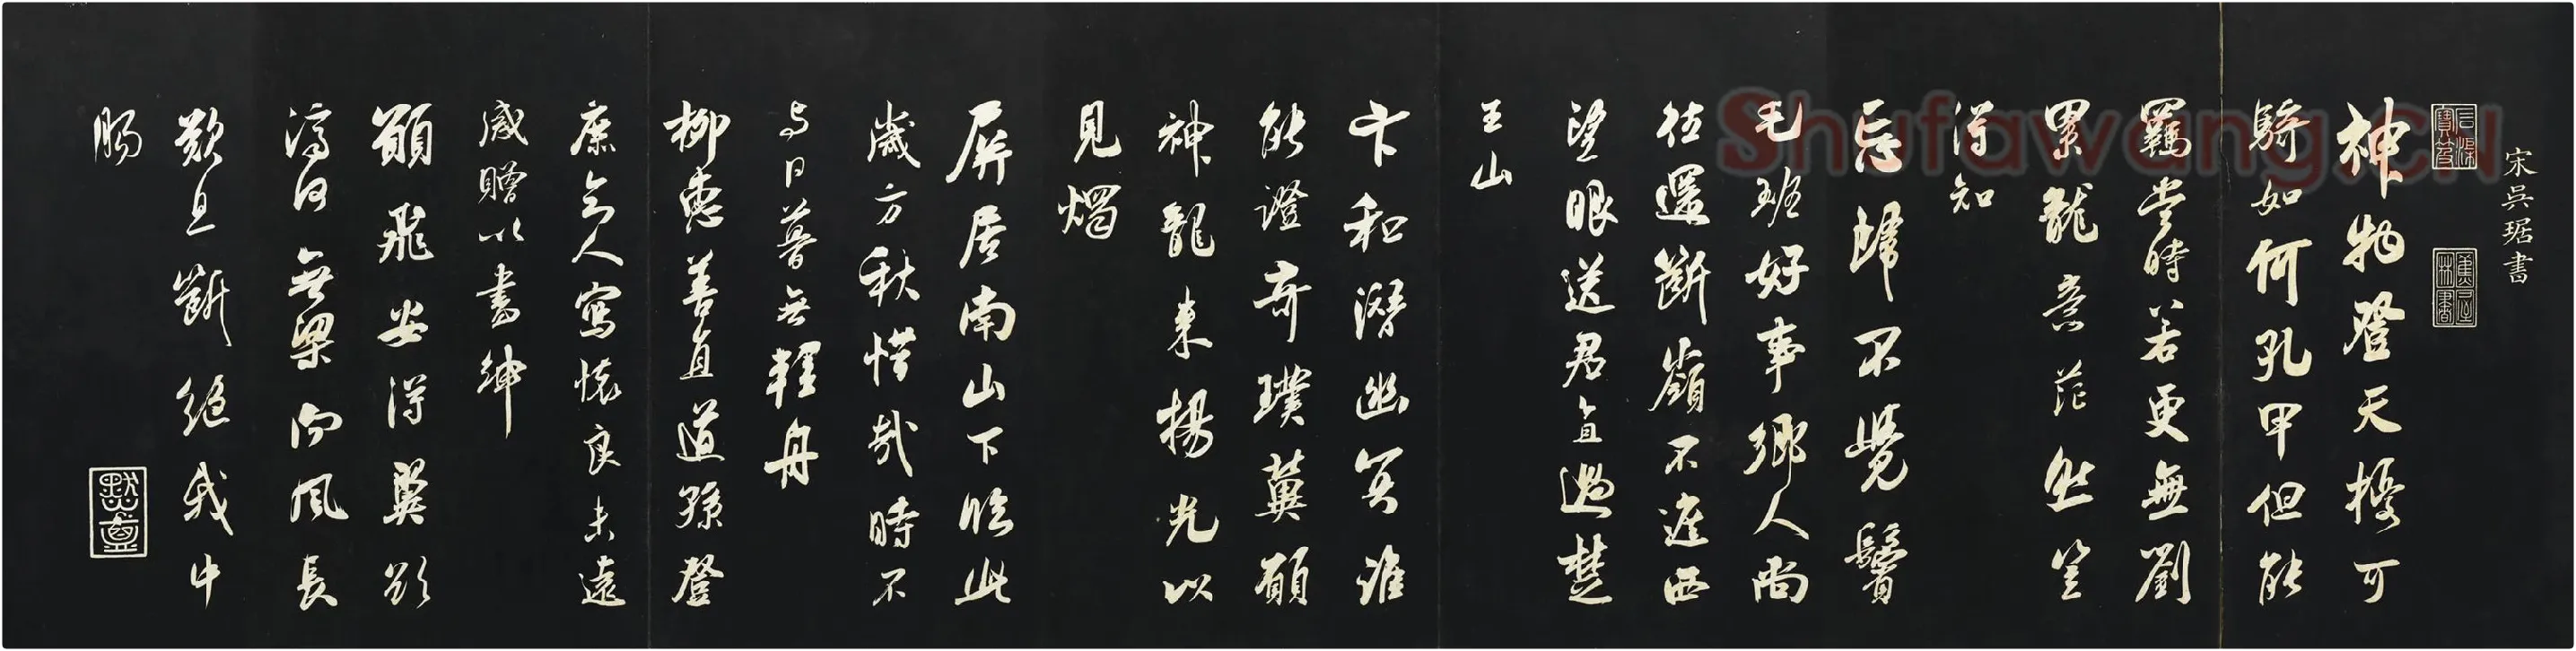 宋吳琚書
神物登天擾可
騎如何孔甲但能
羈當時若更無劉
累龍意茫然豈
得知
忘歸不覺鬢
毛班好事鄉人尚
往還斷嶺不遮西
望眼送君直過楚
王山
卞和潛幽冥誰
能證奇璞冀願
神龍來揚光以
見燭
屏居南山下臨此
歲方秋惜哉時不
与日暮無輕舟
柳惠善直道孫登
庶知人寫懷良未遠
感贈以書紳
願飛安得翼欲
濟河無梁向風長
歎息斷絕我中
腸
Shufawang.CN